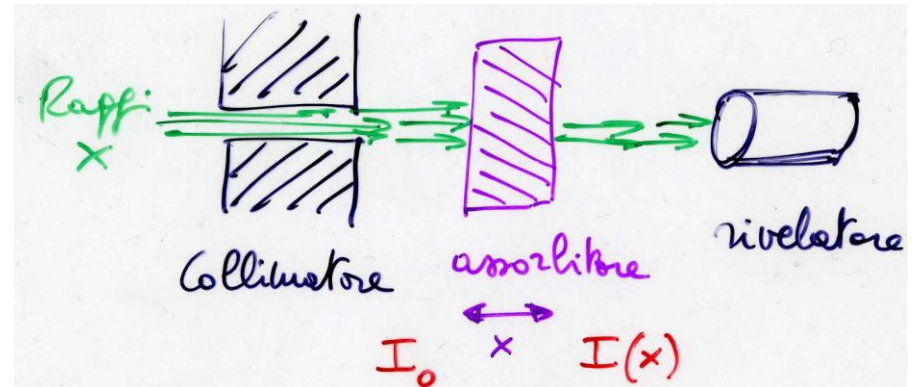 Raggi
X
Collimatore
assorbitore
rivelatore
x
I₀
I(x)